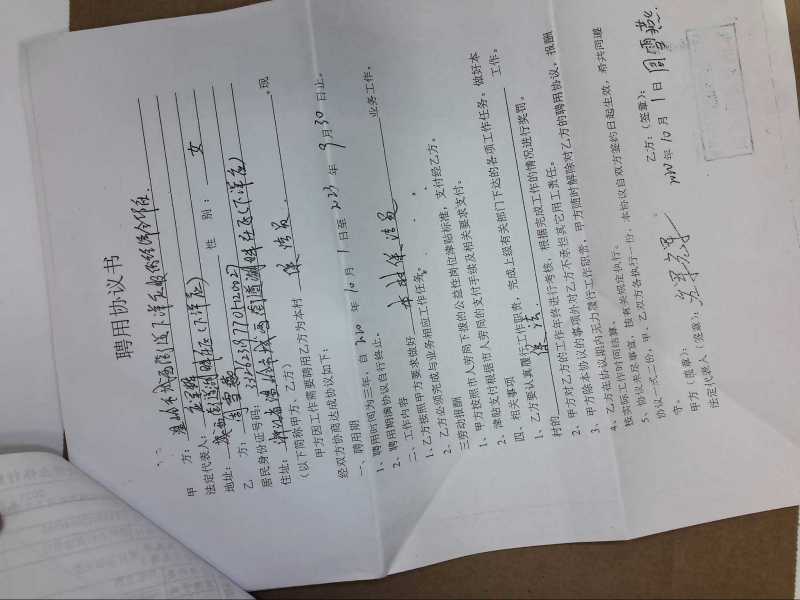 聘用协议书
甲 方：温岭市城西街道下洋应股份经济合作社
法定代表人：
地址：城西街道 下洋应
乙 方：周雪燕 性别：女
居民身份证号码：
住址：浙江省温岭市城西街道 下洋应
（以下简称甲方、乙方） 现
甲方因工作需要聘用乙方为本村 保洁员
经双方协商达成协议如下：
一、聘用期
1、聘用时间为三年，自 2020 年 10 月 1 日至 2023 年 9 月 30 日止。
2、聘用期满协议自行终止。
二、工作内容
1、乙方按照甲方要求做好 保洁员 业务工作。
2、乙方必须完成与业务相应工作任务。
三劳动报酬
甲方按照市人劳局下拨的公益性岗位津贴标准，支付给乙方。
2、津贴支付根据市人劳局的支付手续及相关要求支付。
四、相关事项
1、乙方要认真履行工作职责，完成上级有关部门下达的各项工作任务。做好本
村的 保洁 工作。
2、甲方对乙方的工作年终进行考核，根据完成工作的情况进行奖罚。
3、甲方除本协议的事项外对乙方不承担其它用工责任。
4、乙方在协议期内无力履行工作职责，甲方随时解除对乙方的聘用协议。报酬
按实际工作时间结算。
5、协议未尽事宜，按有关规定执行。
协议一式二份，甲、乙双方各执行一份，本协议自双方签约日起生效，希共同遵
守。
甲方（签章）： 乙方：（签章）：周雪燕
法定代表人（签章）： 2020 年 10 月 1 日